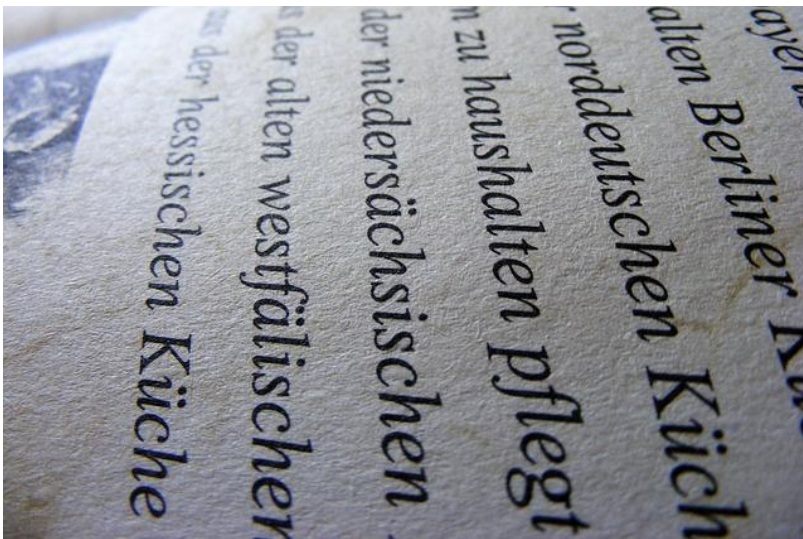 alten Berliner
norddeutschen Küch
zu haushalten pflegt
der niedersächsischen
s der alten westfälischen
aus der hessischen Küche